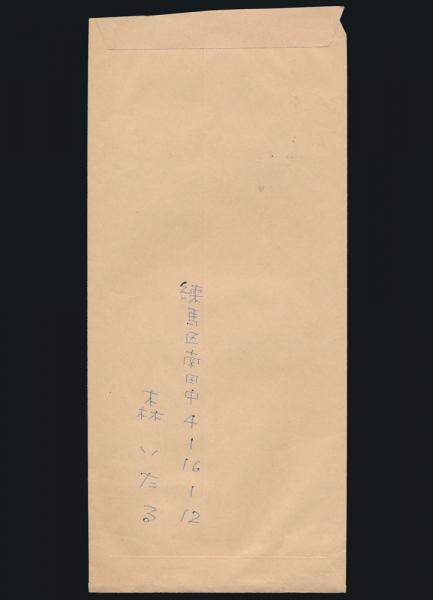 練馬区南田中4-1-16-1-12
森いたる